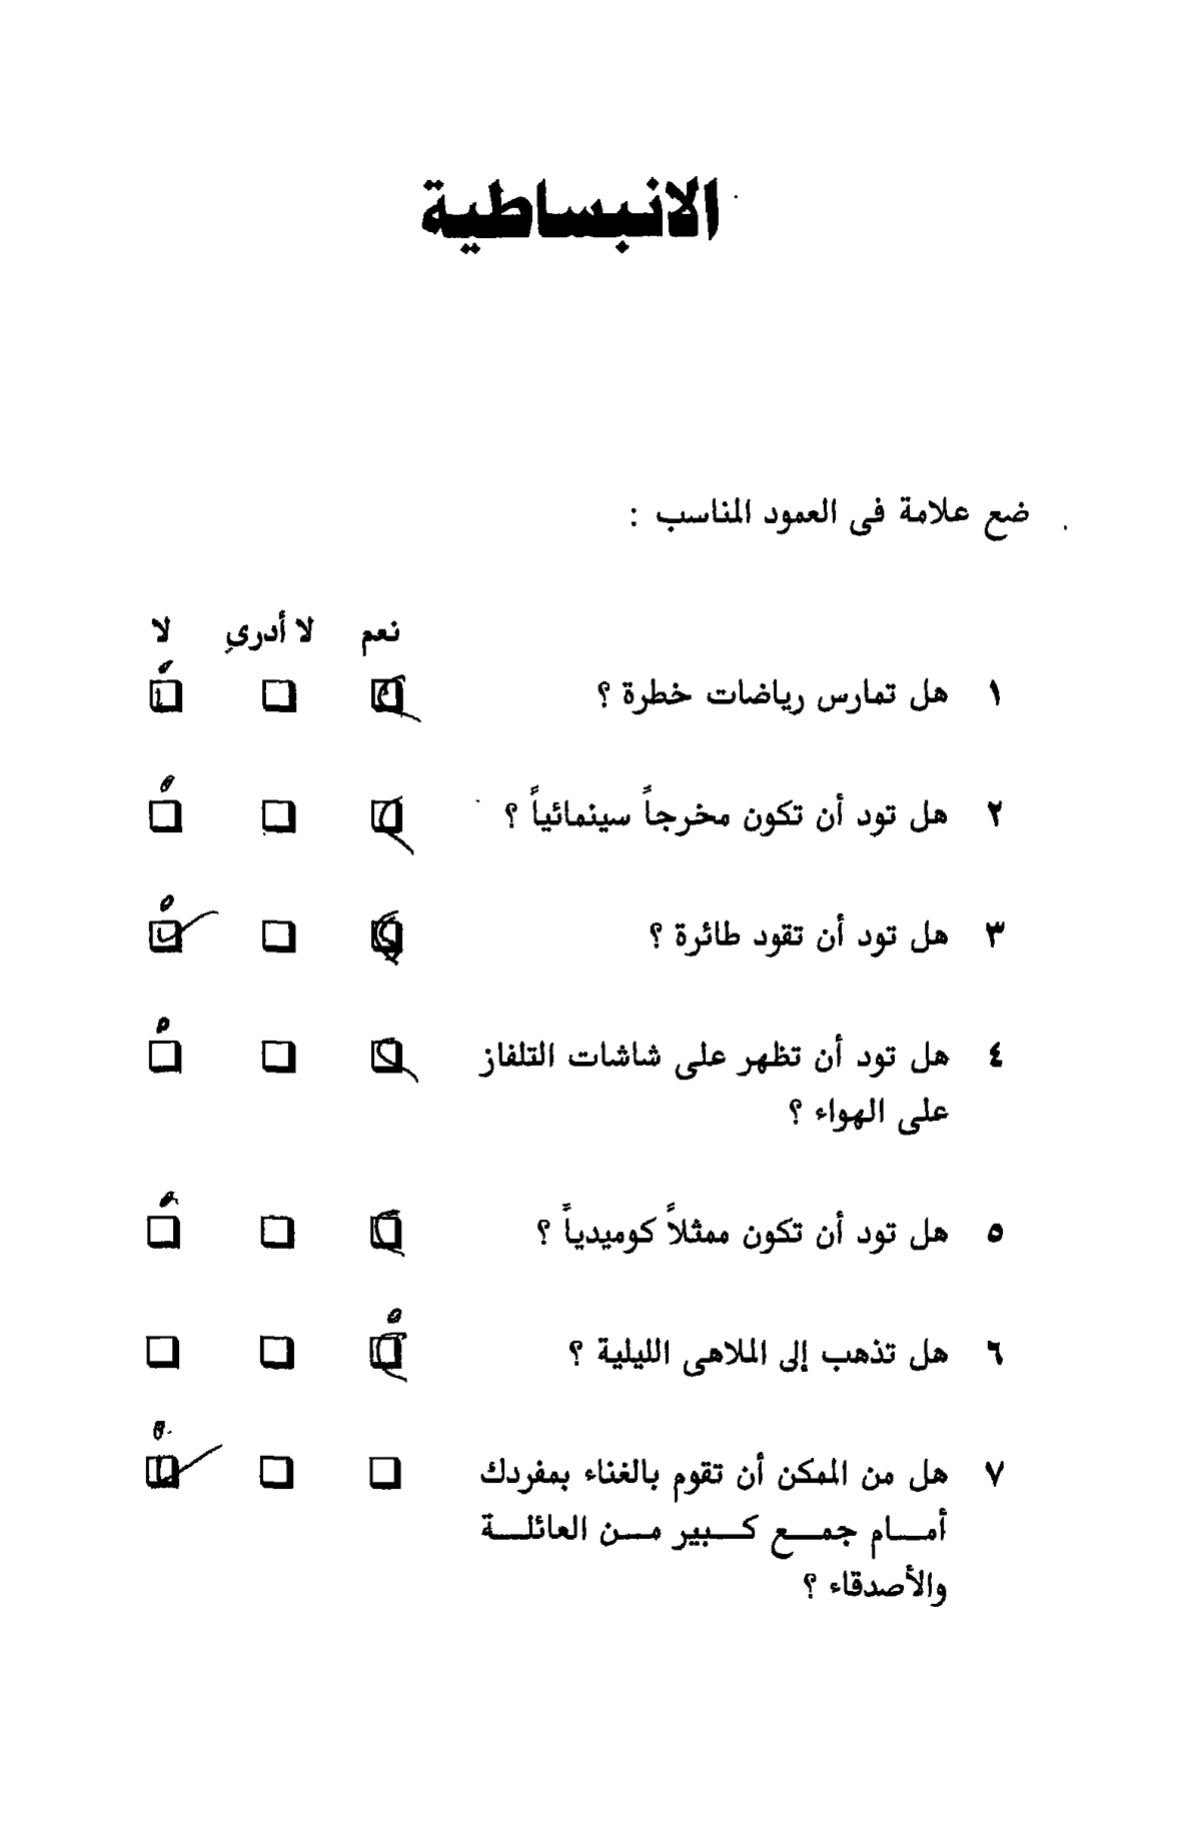 الانبساطية
ضع علامة فى العمود المناسب :
نعم لا أدرى لا
١ هل تمارس رياضات خطرة ؟
٢ هل تود أن تكون مخرجاً سينمائياً ؟
٣ هل تود أن تقود طائرة ؟
٤ هل تود أن تظهر على شاشات التلفاز
على الهواء ؟
٥ هل تود أن تكون ممثلاً كوميدياً ؟
٦ هل تذهب إلى الملاهى الليلية ؟
٧ هل من الممكن أن تقوم بالغناء بمفردك
أمــام جمــع كــبير مــن العائلــة
والأصدقاء ؟